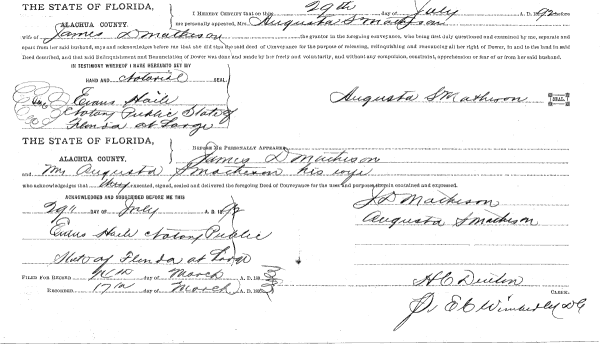 THE STATE OF FLORIDA,
ALACHUA COUNTY.
I HEREBY CERTIFY that on this 29th day of July A. D. 1892 before
me personally appeared, Mrs. Augusta S Matheson
wife of James D Matheson the grantor in the foregoing conveyance, who being duly questioned and examined by me, separate and
apart from her said husband, says and acknowledges before me that she did sign the said deed of Conveyance for the purpose of releasing, relinquishing and renouncing all her right of Dower, in and to the land in said
Deed described, and that said Relinquishment and Renunciation of Dower was made by her freely and voluntarily, and without any compulsion, constraint, apprehension or fear of or from her said husband.
IN TESTIMONY WHEREOF I HAVE HEREUNTO SET MY
HAND AND Notarial SEAL
Evans Haile
Notary Public State of
Florida at Large
Augusta S Matheson SEAL
THE STATE OF FLORIDA,
ALACHUA COUNTY,
BEFORE ME PERSONALLY APPEARED
James D Matheson
and Mrs Augusta S Matheson his wife
who acknowledges that they executed, signed, sealed and delivered the foregoing Deed of Conveyance for the uses and purposes therein contained and expressed.
ACKNOWLEDGED AND SUBSCRIBED BEFORE ME THIS
29th DAY OF July A. D. 1892
Evans Haile Notary Public
State of Florida at Large
J D Matheson
Augusta S Matheson
FILED FOR RECORD day of March A. D. 189
RECORDED 17th day of March A. D. 189
H C Denton CLERK.
E C Wimberly D C